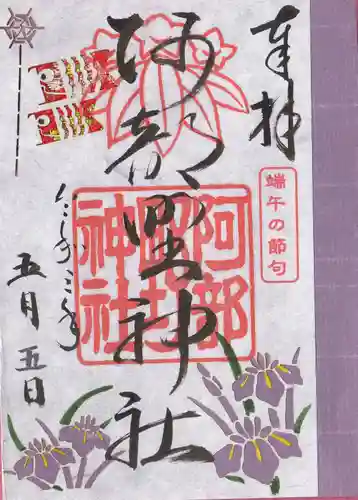 奉拝
端午の節句
阿部野神社
阿部野神社
令和三年
五月五日